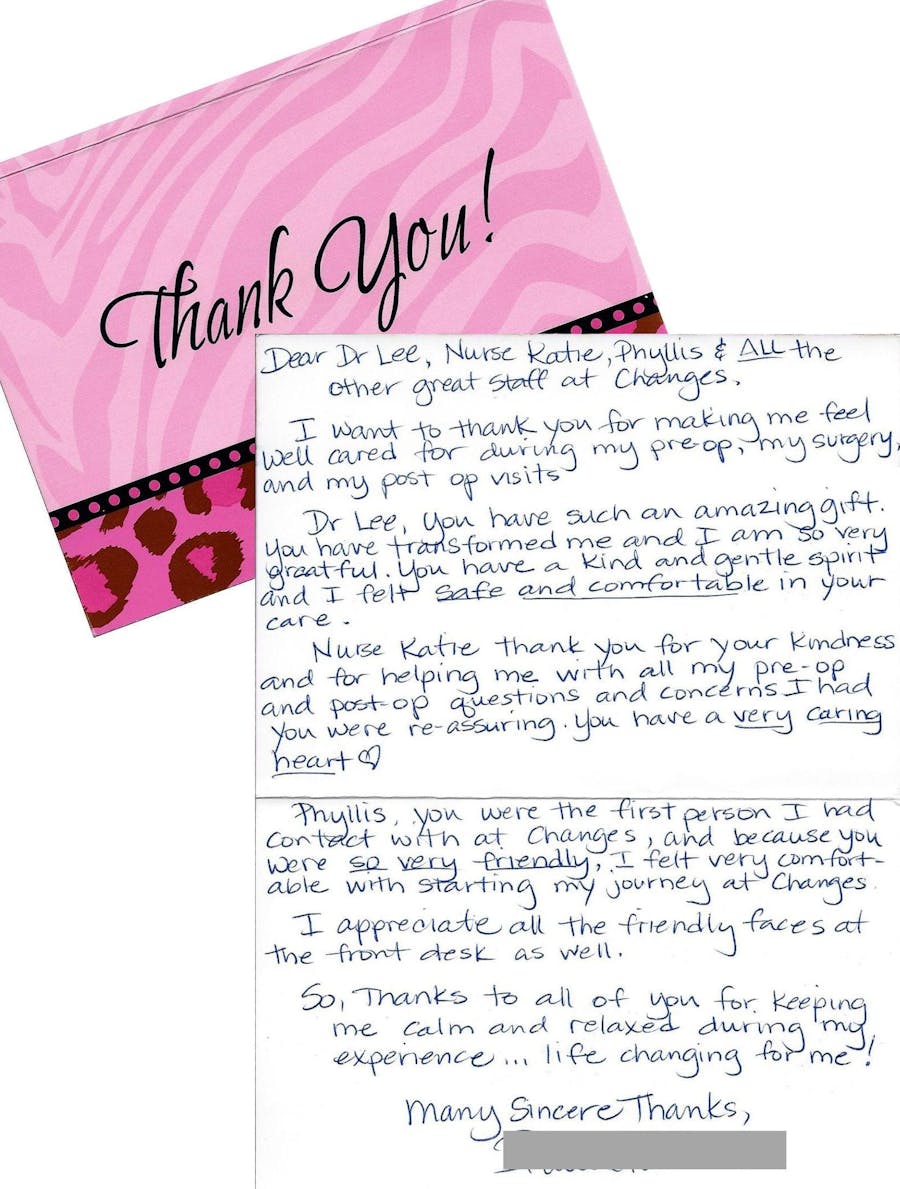 Thank You!
Dear Dr Lee, Nurse Katie, Phyllis & ALL the
other great staff at Changes.
I want to thank you for making me feel
well cared for during my pre-op, my surgery,
and my post op visits
Dr Lee, you have such an amazing gift.
You have transformed me and I am so very
greatful. You have a kind and gentle spirit
and I felt safe and comfortable in your
care.
Nurse Katie thank you for your kindness
and for helping me with all my pre-op
and post-op questions and concerns I had
You were re-assuring. You have a very caring
heart
Phyllis, you were the first person I had
contact with at Changes, and because you
were so very friendly, I felt very comfort-
able with starting my journey at Changes.
I appreciate all the friendly faces at
the front desk as well.
So, Thanks to all of you for keeping
me calm and relaxed during my
experience... life changing for me!
Many Sincere Thanks,